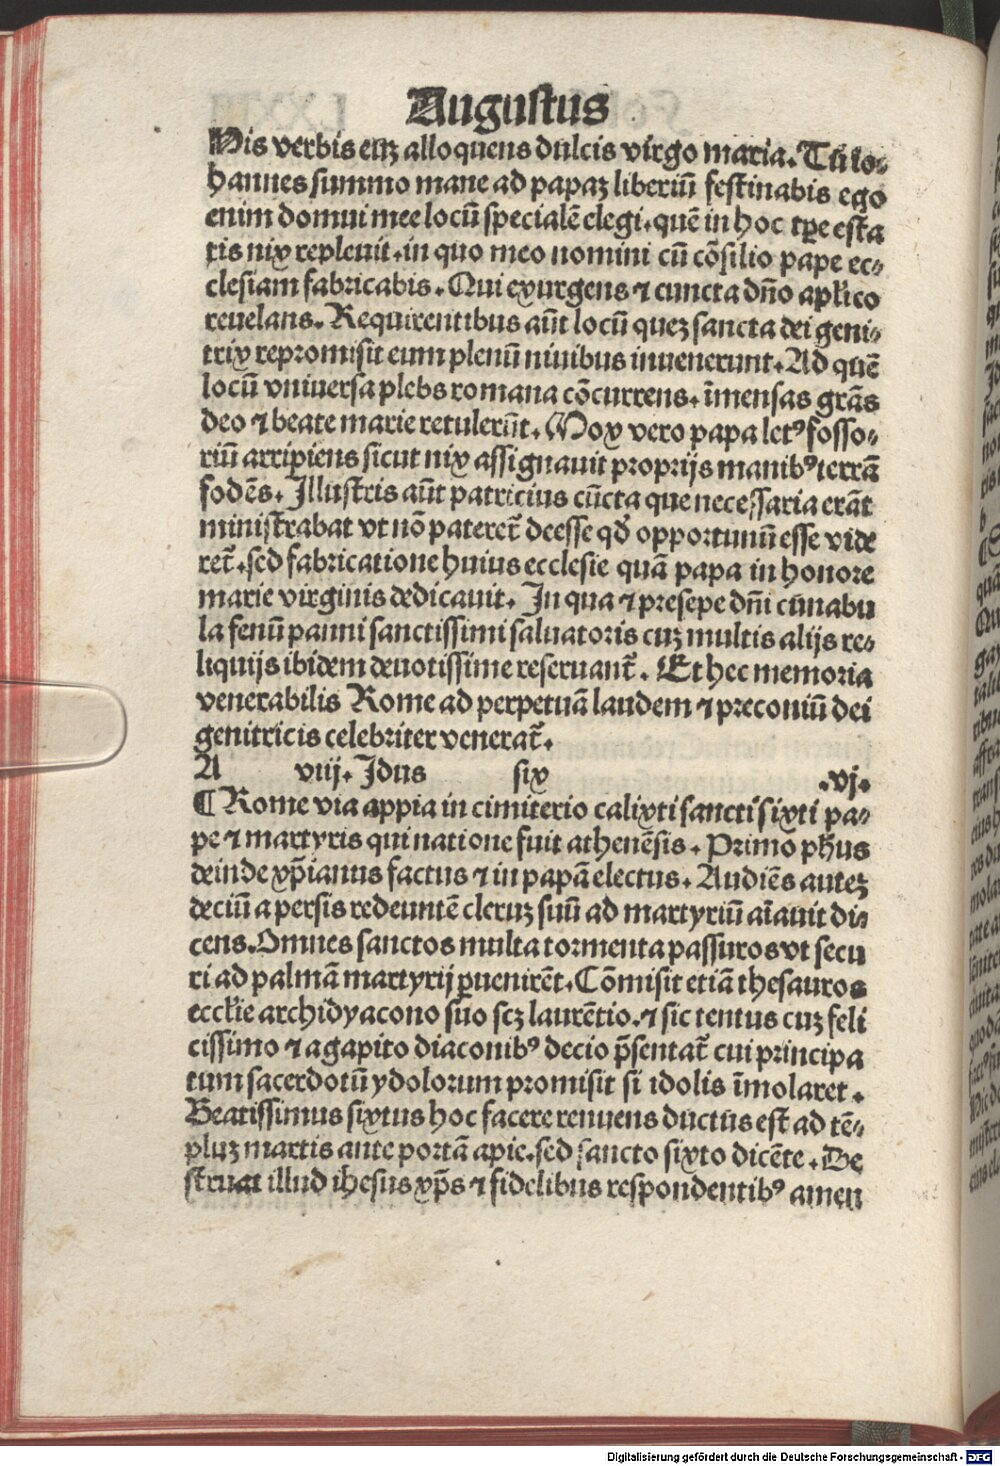 Augustus
His verbis euꝫ alloquens dulcis virgo maria. Tu io⸗
hannes summo mane ad papaꝫ liberiū festinabis ego
enim domui mee locū specialē elegi. quē in hoc tꝑe esta
tis nix repleuit. in quo meo nomini cū cōsilio pape ec⸗
clesiam fabricabis. Qui exurgens ⁊ cuncta dn̄o apl̓ico
reuelans. Requirentibus aūt locū quez sancta dei geni⸗
trix repromisit eum plenū niuibus inuenerunt. Ad quē
locū vniuersa plebs romana cōcurrens. īmensas gr̄as
deo ⁊ beate marie retulerūt. Mox vero papa letꝰ fosso⸗
riū arripiens sicut nix assignauit proprijs manibꝰ terrā
fodēs. Illustris aūt patricius cūcta que necessaria erāt
ministrabat vt nō pateret̄ deesse qd̓ opportunū esse vide
ret̄. sed fabricatione huius ecclesie quā papa in honore
marie virginis dedicauit. In qua ⁊ presepe dn̄i cunabu
la fenū panni sanctissimi saluatoris cuꝫ multis alijs re⸗
liquijs ibidem deuotissime reseruant̄. Et hec memoria
venerabilis Rome ad perpetuā laudem ⁊ preconiū dei
genitricis celebriter venerat̄.
A viij. Idus six .vj.
¶ Rome via appia in cimiterio calixti sancti sixti pa⸗
pe ⁊ martyris qui natione fuit athenēsis. Primo ph̓us
deinde xp̄ianus factus ⁊ in papā electus. Audiēs auteꝫ
deciū a persis redeuntē cleruꝫ suū ad martyriū aīauit di⸗
cens. Omnes sanctos multa tormenta passuros vt secu
ri ad palmā martyrij ꝑuenirēt. Cōmisit etiā thesauros
eccl̓ie archidyacono suo scꝫ laurētio. ⁊ sic tentus cuꝫ feli
cissimo ⁊ agapito diaconibꝰ decio p̄sentat̄ cui principa
tum sacerdotū ydolorum promisit si idolis īmolaret.
Beatissimus sixtus hoc facere renuens ductus est ad tē⸗
pluꝫ martis ante portā apie. sed sancto sixto dicēte. De
struat illud ihesus xp̄s ⁊ fidelibus respondentibꝰ amen
Digitalisierung gefördert durch die Deutsche Forschungsgemeinschaft - DFG